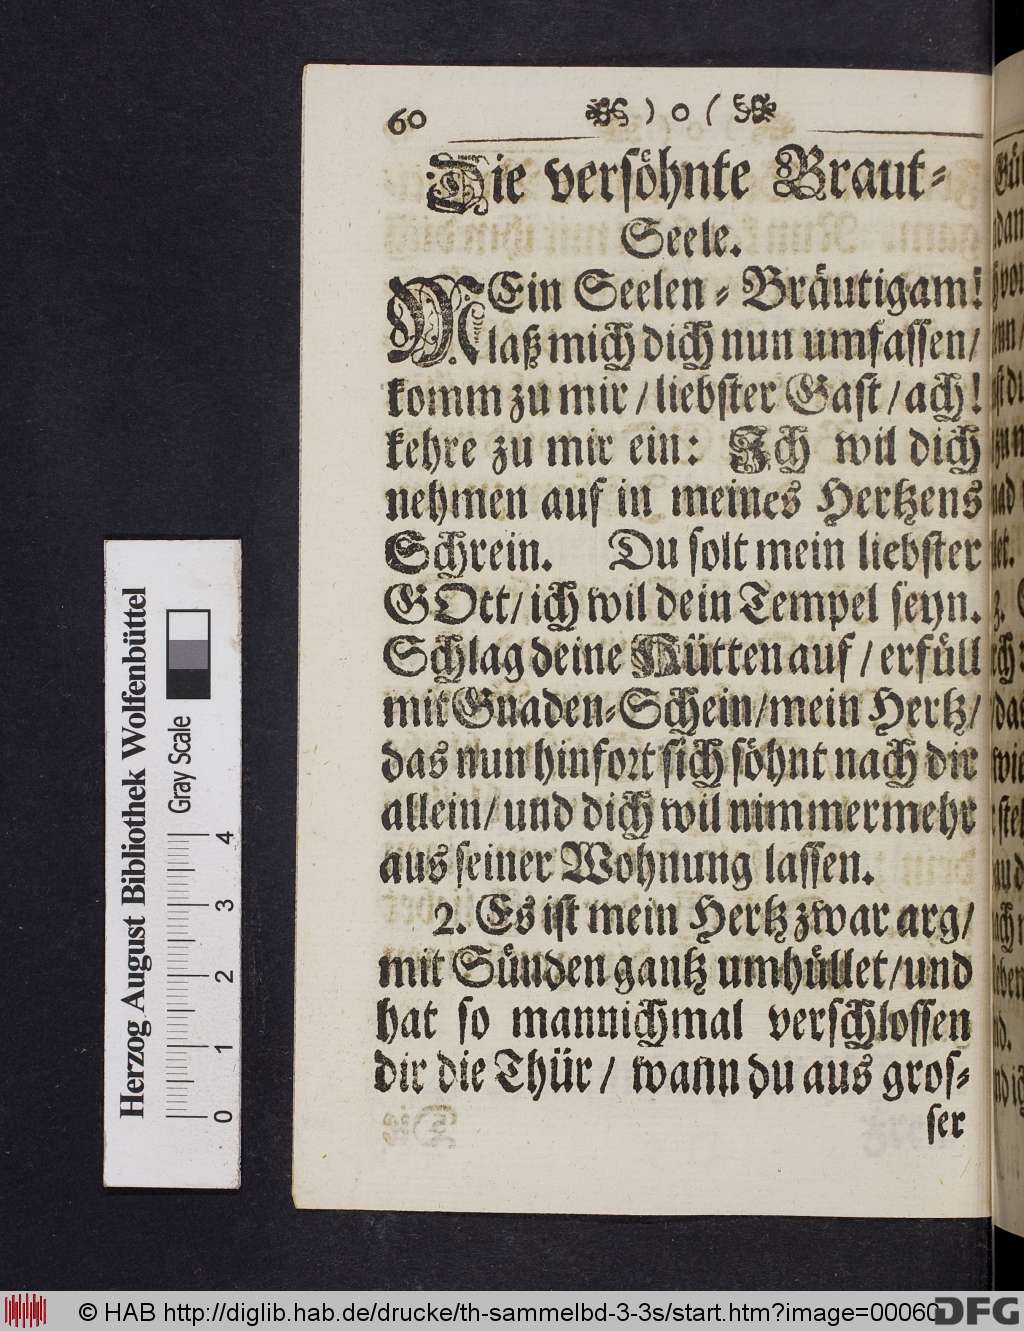 60 ) o (
Die versöhnte Braut-
Seele.
MEin Seelen-Bräutigam!
laß mich dich nun umfassen/
komm zu mir / liebster Gast / ach!
kehre zu mir ein: Ich wil dich
nehmen auf in meines Hertzens
Schrein. Du solt mein liebster
GOtt/ ich wil dein Tempel seyn.
Schlag deine Hütten auf / erfüll
mit Gnaden-Schein/mein Hertz/
das nun hinfort sich söhnt nach dir
allein/ und dich wil nimmermehr
aus seiner Wohnung lassen.
2. Es ist mein Hertz zwar arg/
mit Sünden gantz umhüllet/und
hat so mannichmal verschlossen
dir die Thür / wann du aus gros-
ser
Herzog August Bibliothek Wolfenbüttel
Gray Scale
0 1 2 3 4
© HAB http://diglib.hab.de/drucke/th-sammelbd-3-3s/start.htm?image=00060
DFG